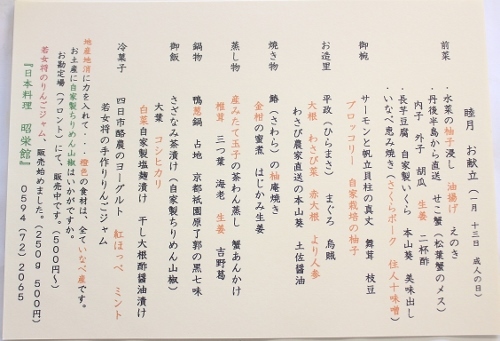 睦月 お献立（一月 十三日 成人の日）
前菜 ・水菜の柚子浸し 油揚げ えのき
・丹後半島から直送 せこ蟹（松葉蟹のメス）
内子 外子 胡瓜 生姜 二杯酢
・長芋豆腐 自家製いくら 本山葵 美味出し
・いなべ恵み焼き（さくらポーク 住人十味噌）
御椀 サーモンと帆立貝柱の真丈 舞茸 枝豆
ブロッコリー 自家栽培の柚子
お造里 平政（ひらまさ） まぐろ 烏賊
大根 わさび菜 赤大根 より人参
わさび農家直送の本山葵 土佐醤油
焼き物 鰆（さわら）の柚庵焼き
金柑の蜜煮 はじかみ生姜
蒸し物 産みたて玉子の茶わん蒸し 蟹あんかけ
椎茸 三つ葉 海老 生姜 吉野葛
鍋物 鴨葱鍋 占地 京都祇園原了郭の黒七味
御飯 さざなみ茶漬け（自家製ちりめん山椒）
大葉 コシヒカリ
白菜自家製塩麹漬け 干し大根酢醤油漬け
冷菓子 四日市酪農のヨーグルト 紅ほっぺ ミント
若女将の手作りりんごジャム
地産地消に力を入れて・・・橙色の食材は、全ていなべ産です。
お土産に自家製ちりめん山椒はいかがですか。
お勘定場（フロント）にて、販売中です。（500円～）
若女将のりんごジャム、販売始めました。（250g 500円）
『日本料理 昭栄館』 0594（72）2065